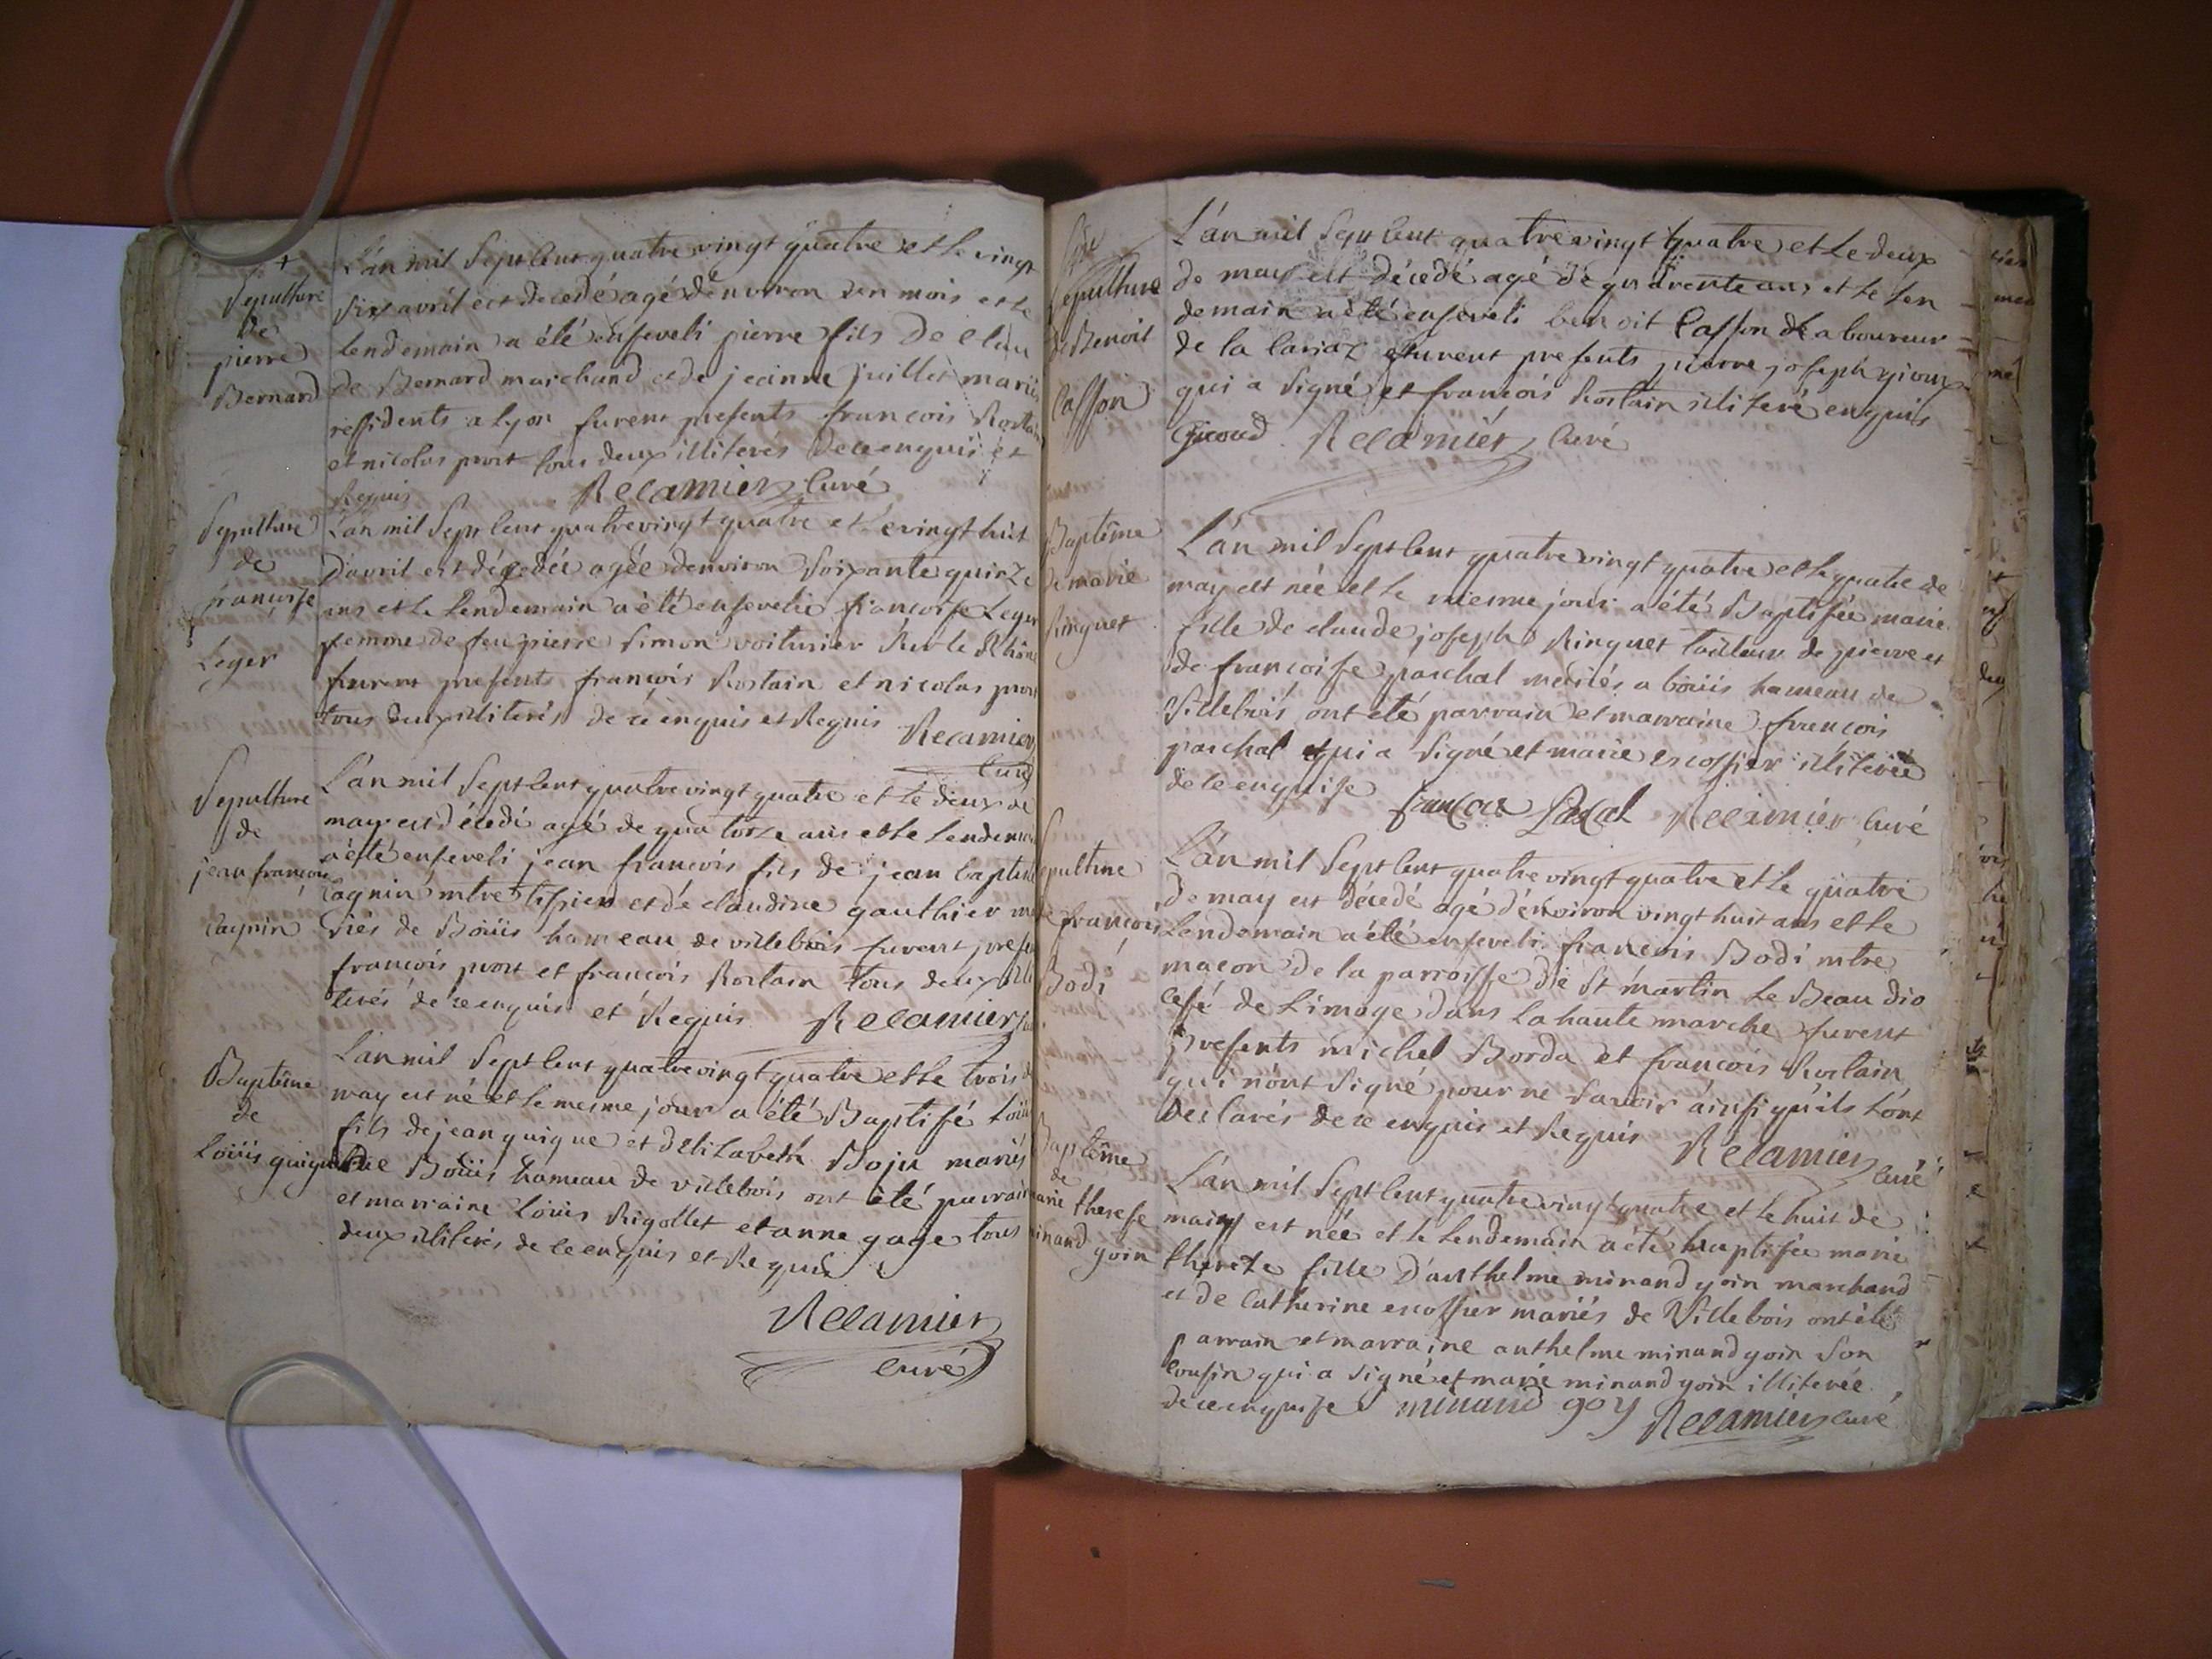 +
Sepulture
de
pierre
Bernard
L'an mil Sept Cent quatre vingt quatre et le vingt
six avril est decedé agé d'environ un mois et le
lendemain a été enseveli pierre fils de Clau
de Bernard marchand et de jeanne juillet mariés
ressidents a lyon furent presents françois Rostain
et nicolas prost tous deux illiterés de ce enquis et
Requis Recamier Curé
Sepulture
de
françoise
Leger
L'an mil Sept Cent quatre vingt quatre et le vingt huit
D'avril est décedée agée d'environ Soixante quinze
ans et le lendemain a été ensevelie françoise Leger
femme de feu pierre Simon voiturier sur le Rhône
furent presents françois Rostain et nicolas prost
tous deux illiterés de ce enquis et Requis Recamier
Curé
Sepulture
de
jean françois
Cagnin
L'an mil Sept Cent quatre vingt quatre et le deux de
may est décedé agé de quatorze ans et le lendemain
a été enseveli jean françois fils de jean baptiste
Cagnin mtre et de claudine gauthier ma
riés de Boüis hameau de villebois furent presents
françois prost et françois Rostain tous deux illi
terés de ce enquis et Requis Recamier
Baptême
de
Loüis guigue
L'an mil Sept Cent quatre vingt quatre et le trois de
may est né et le mesme jour a été Baptisé Loüis
fils de jean guigue et d'Elizabeth Boju mariés
De Boüis hameau de villebois ont été parrain
et marraine Loüis Rigollet et anne gage tous
deux illiterés de ce enquis et Requis
Recamier
Curé
Sepulture
de Benoit
Casson
L'an mil Sept Cent quatre vingt quatre et le deux
de may est décedé agé de quarente ans et le len
demain a été enseveli benoit Casson laboureur
de la furent presents pierre joseph
qui a Signé et françois Rostain illiteré enquis
Giroud Recamier Curé
Baptême
de marie
Ringuet
L'an mil Sept Cent quatre vingt quatre et le quatre de
may est née et le mesme jour a été Baptisée marie
fille de claude joseph Ringuet tailleur de pierre et
de françoise paschal mariés a boüis hameau de
Villebois ont été parrain et marraine françois
paschal qui a Signé et marie escoffier illiterée
de ce enquise françois Pascal Recamier Curé
Sepulture
de françois
Bodi
L'an mil Sept Cent quatre vingt quatre et le quatre
de may est décedé agé d'environ vingt huit ans et le
Lendemain a été enseveli françois Bodi mtre
maçon de la parroisse de St martin le Beau dio
cese de Limoge dans la haute marche furent
presents michel Borda et françois Rostain
qui n'ont Signé pour ne Savoir ainsi qu'ils l'ont
declarés de ce enquis et Requis Recamier
Curé
Baptême
de
marie therese
minand
goin
L'an mil Sept Cent quatre vingt quatre et le huit de
may est née et le lendemain a été baptisée marie
thereze fille d'anthelme minand goin marchand
et de Catherine escoffier mariés de Villebois ont été
parrain et marraine anthelme minand goin Son
Cousin qui a Signé et marie minand goin illiterée
de ce enquise minand goy Recamier Curé